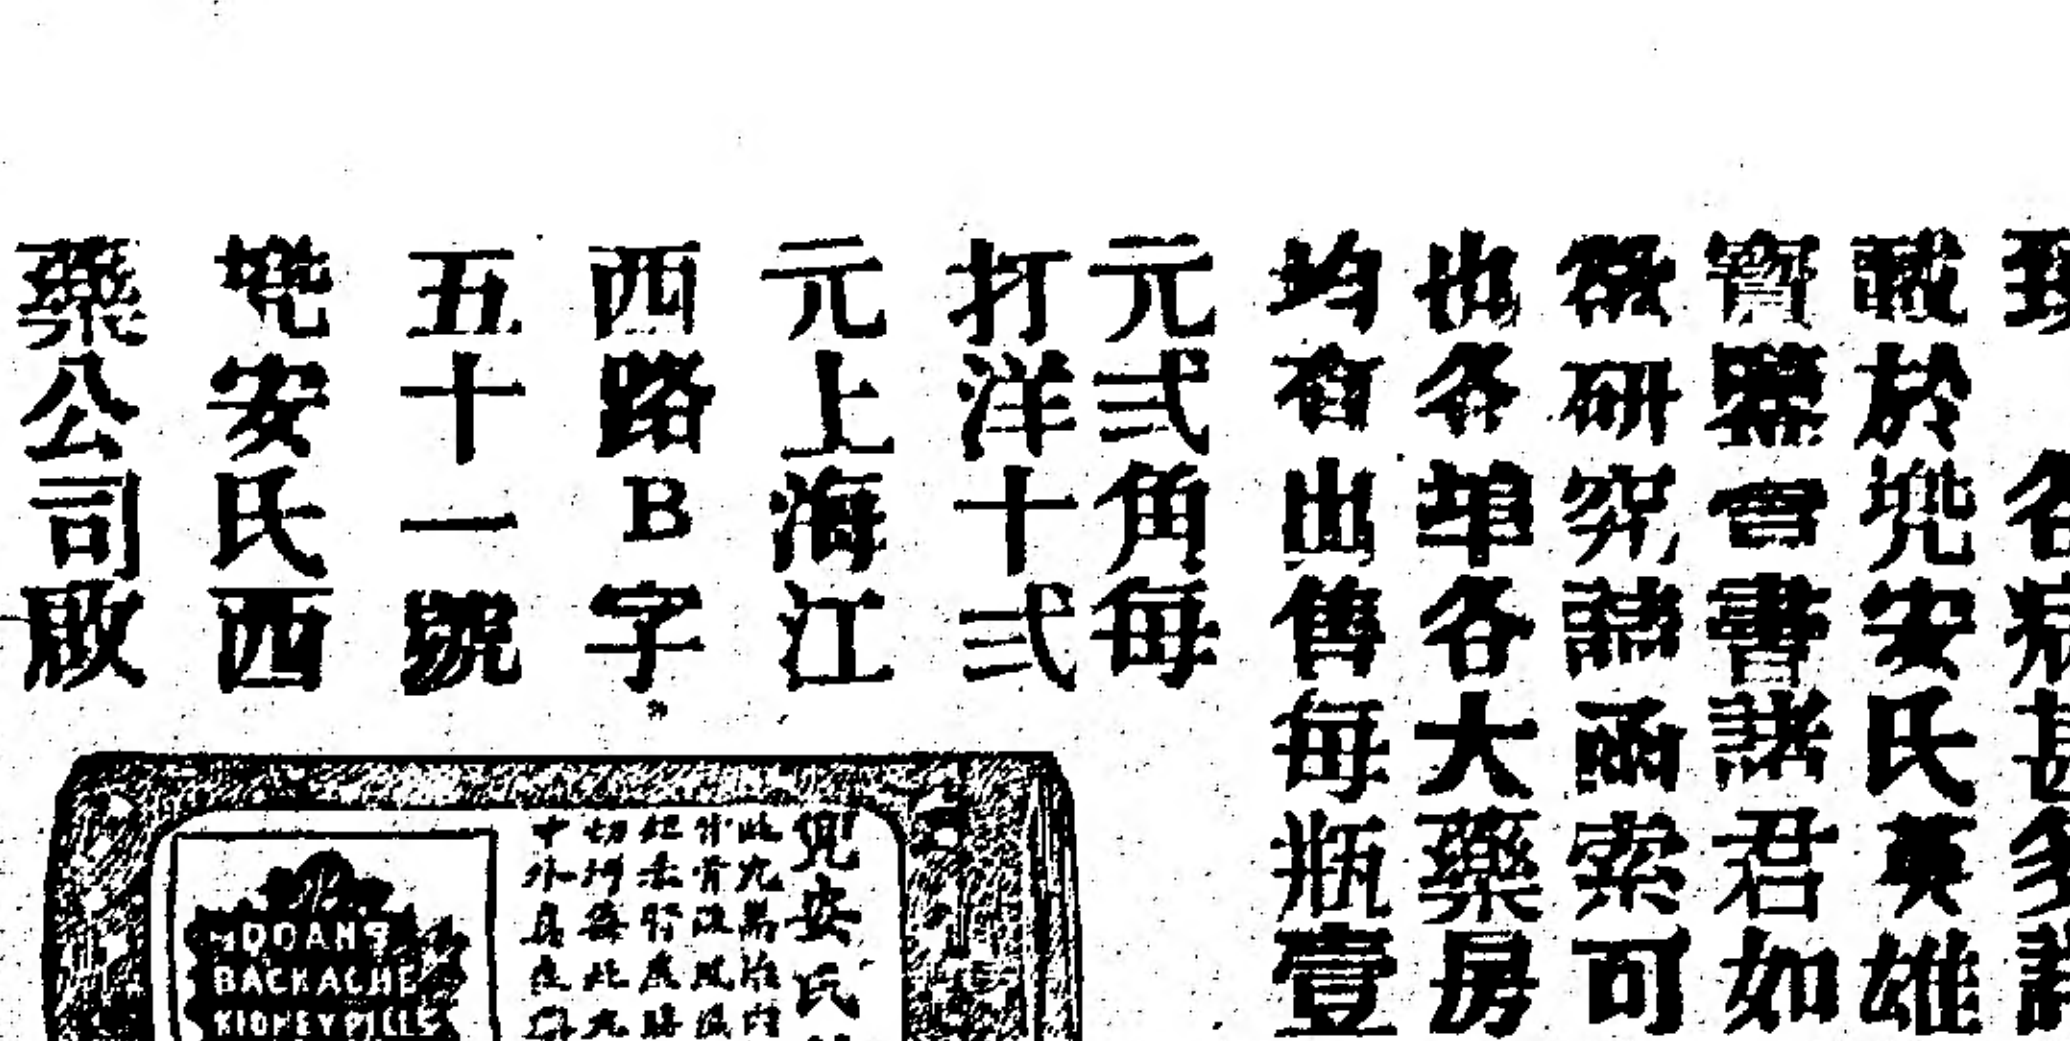 各病甚多
於兠安氏英雄
寶鑒書諸君如
欲研究請函索可
也各埠各大藥房
均有出售每瓶壹
元弍角每
打洋十弍
元上海江
西路B字
五十一號
兠安氏西
藥公司啟
兜安氏
BACKACHE
KIDNEY PILLS